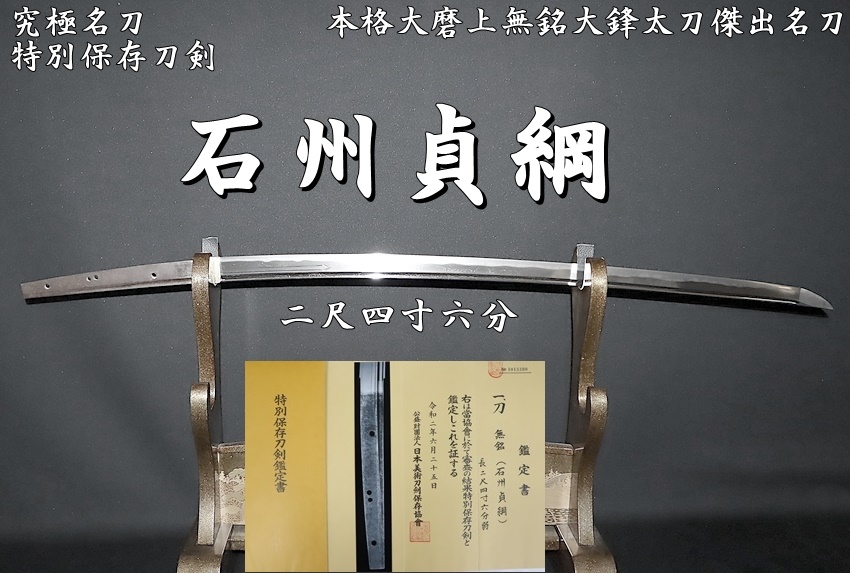 究極名刀
特別保存刀剣
本格大磨上無銘大鋒太刀傑出名刀
石州貞綱
二尺四寸六分
特別保存刀剣鑑定書
鑑定書
一、刀 無銘(石州貞綱)
長二尺四寸六分弱
右は當協會に於て審査の結果特別保存刀剣と
鑑定しこれを証する
令和二年六月二十五日
公益財團法人 日本美術刀剣保存協會